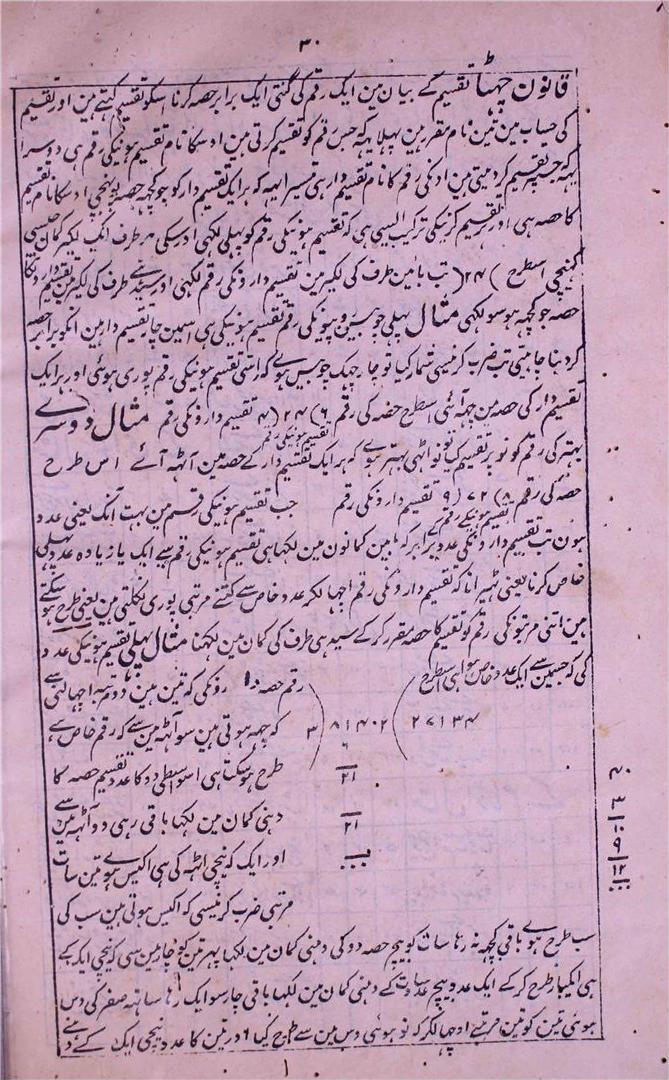 ۳۰
قانون چھٹا تقسیم کے بیان مین ایک رقم کی گنتی ایک برابر حصہ کرنا اسکو تقسیم کہتے ہین اور تقسیم
کی حساب مین تین نام مقرر ہین پہلا یہہ کہ جس رقم کو تقسیم کرتی ہین اوسکا نام تقسیم ہونیکی رقم ہی دوسرا
یہہ کہ جسپر تقسیم کر دیتی ہین اونکی رقم کا نام تقسیم دار ہی تیسرا یہہ کہ ہر ایک تقسیم دار کو جو کچہہ حصہ پونہچی اوسکا نام تقسیم
کا حصہ ہی اور تقسیم کرنیکی ترکیب ایسی ہی کہ تقسیم ہونیکی رقم کو پہلی لکہی اوسکی ہر طرف ایک لکیر کمان جیسی
کہنچی اسطرح ) ۲۴ ( تب بائین طرف کی لکیر مین تقسیم دارونکی رقم لکہی اور سیدہے طرف کی لکیر مین تقسیم دارونکا
حصہ جو کچہہ ہو سو لکہی مثال پہلی چوبیس روپیونکی رقم تقسیم ہونیکی ہی اسمین چار تقسیم دار ہین انکو برابر حصہ
کر دینا چاہیئی تب ضرب کرنیسی شمار کیا تو چار چہک چوبیس ہوے کہ اتنی تقسیم ہونیکی رقم پوری ہوئی اور ہر ایک
تقسیم دار کی حصہ مین چہہ آئی اسطرح حصہ کی رقم ۶ ) ۲۴ ( ۴ تقسیم دارونکی رقم مثال دوسرے
تقسیم ہونیکی رقم
بہتر کی رقم کو نو پر تقسیم کیا تو نو اٹہی بہتر ہوے کہ ہر ایک تقسیم دار کے حصہ مین آٹہہ آئے اس طرح
حصہ کی رقم ۸ ) ۷۲ ( ۹ تقسیم دارونکی رقم جب تقسیم ہونیکی رقم مین بہت آنک یعنی عدد
تقسیم ہونیکے رقم
ہون تب تقسیم دارونکی عدد برابر کہ بائین کمانون مین لکہا ہی تقسیم ہونیکی رقم سے ایک یا زیادہ عدد پہلی
خاص کرنا یعنی ٹہیرانا کہ تقسیم دارونکی رقم اچہا لکر عدد خاص سے کتنے مرتبی پوری نکلتی ہین یعنی طرح ہو سکتے
ہین اتنی مرتبونکی رقم کو تقسیم کا حصہ مقرر کر کے سیدہی طرف کی کمان مین لکہنا مثال پہلی تقسیم ہونیکی عدد
کی کہ جسمین سے ایک عدد خاص ہوا ہی اسطرح
رقم حصہ دارونکی کہ تین ہین دو مرتبہ اچہالنی سے
۳ ) ۸۱۴۰۲ ( ۲۷۱۳۴
کہ چہہ ہوتی ہین سو آٹہہ مین سے کہ رقم خاص ہے
۶
طرح ہو سکتا ہی اسواسطی دو کا عدد تقسیم حصہ کا
۲۱
دہنی کمان مین لکہا باقی رہی دو آٹہہ مین سے
۲۱
اور ایک کہ نیچی اٹہہ کی ہی اکیس ہوے تین سات
مرتبی ضرب کرنیسی کہ اکیس ہوتی ہین سب کی
سب طرح ہوے باقی کچہہ نہ رہا سات کو بیچ حصہ دو کی دہنی کمان مین لکہا پہر تین کو چار مین سی کہ نیچی ایک کے
ہی ایکبار طرح کر کے ایک عدد بیچ عدد سات کے دہنی کمان مین لکہا باقی چار سو ایک رہا ساتہہ صفر کی دس
ہوئی تین کو تین مرتبے اوچہالکر کہ نو ہوئی دس مین سے طرح کیا اور تین کا عدد نیچی ایک کے دہنے
۴
۳
۱۰
۹
۱۲
۱